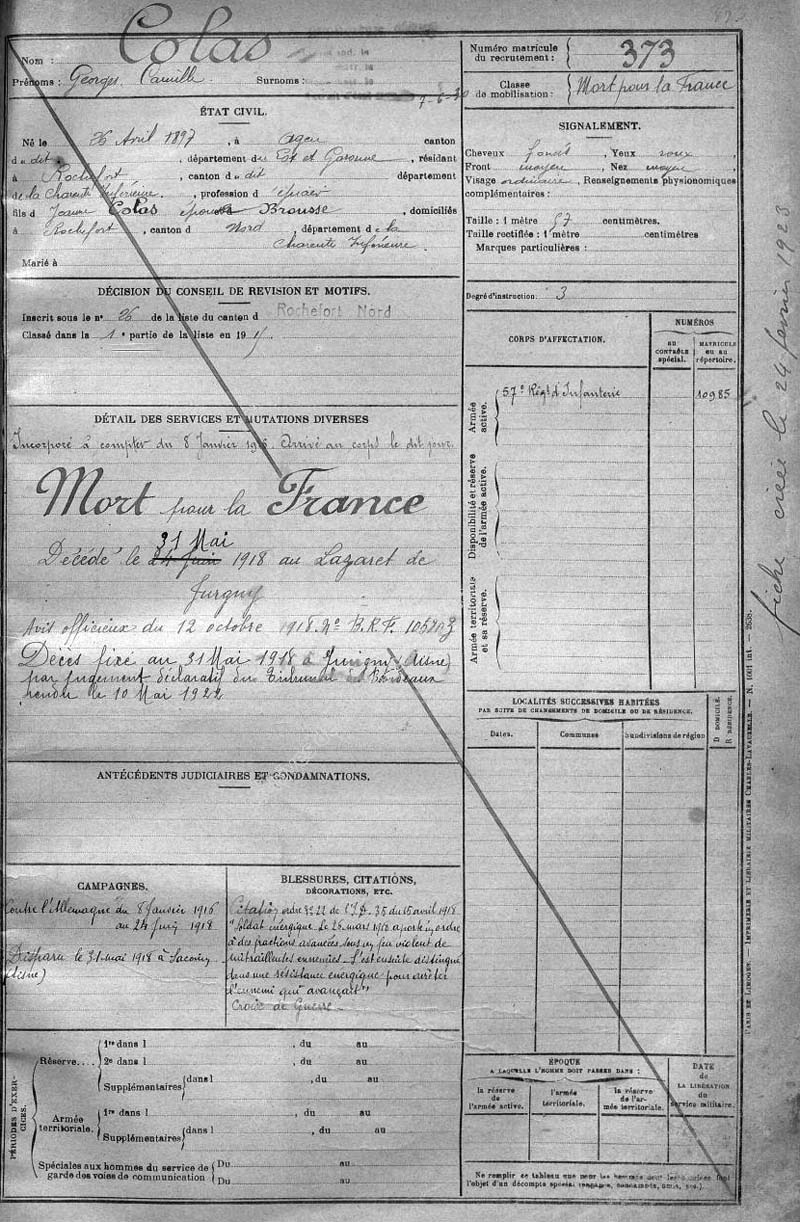 Nom : Colas
Prénoms : Georges Camille Surnoms :
ÉTAT CIVIL.
Né le 26 Avril 1897, à Agen canton
du dit, département du Lot et Garonne, résidant
à Rochefort, canton du dit département
de la Charente Inférieure, profession d
fils d Jeanne Colas épouse Brousse, domiciliés
à Rochefort, canton d Nord, département de la
Charente Inférieure.
Marié à
DÉCISION DU CONSEIL DE REVISION ET MOTIFS.
Inscrit sous le n° 26 de la liste du canton d Rochefort Nord
Classé dans la 1e partie de la liste en 191
DÉTAIL DES SERVICES ET MUTATIONS DIVERSES
Incorporé à compter du 8 Janvier 1916. Arrivé au corps le dit jour.
Mort pour la France
31 Mai
Décédé le 24 Juin 1918 au Lazaret de
Juvigny
Avis officieux du 12 octobre 1918. N° B.R.F.
Décès fixé au 31 Mai 1918 à Juvigny (Aisne)
par jugement déclaratif du Tribunal de Bordeaux
rendu le 10 Mai 1922
ANTÉCÉDENTS JUDICIAIRES ET CONDAMNATIONS.
CAMPAGNES.
Contre l'Allemagne du 8 Janvier 1916
au 24 Juin 1918
Disparu le 31 mai 1918 à
(Aisne)
BLESSURES, CITATIONS,
DÉCORATIONS, ETC.
Citation ordre de l'I.D. 35 du 15 avril 1918
"Soldat énergique. Le 26 mars 1918 a porté un ordre
à des fractions avancées sous un feu violent de
mitrailleuses ennemies. S'est ensuite distingué
dans une résistance énergique pour arrêter
l'ennemi qui avançait"
Croix de Guerre
PÉRIODES D'EXERCICES.
Réserve....
1re dans l , du au
2e dans l , du au
Supplémentaires dans l , du au
Armée territoriale.
1re dans l , du au
Supplémentaires dans l , du au
Spéciales aux hommes du service de garde des voies de communication
Du au
Du au
Numéro matricule
du recrutement : 373
Classe
de mobilisation : Mort pour la France
SIGNALEMENT.
Cheveux foncés, Yeux roux,
Front moyen, Nez moyen,
Visage ordinaire, Renseignements physionomiques
complémentaires :
Taille : 1 mètre 57 centimètres.
Taille rectifiée : 1 mètre centimètres
Marques particulières :
Degré d'instruction : 3
CORPS D'AFFECTATION.
NUMÉROS
au contrôle spécial.
matricule ou au répertoire.
Armée active.
57e Régt d'Infanterie 10985
Disponibilité et réserve de l'armée active.
Armée territoriale et sa réserve.
LOCALITÉS SUCCESSIVES HABITÉES
PAR SUITE DE CHANGEMENTS DE DOMICILE OU DE RÉSIDENCE.
Dates. Communes Subdivisions de région D DOMICILE. R RÉSIDENCE.
ÉPOQUE
A LAQUELLE L'HOMME DOIT PASSER DANS :
la réserve de l'armée active.
l'armée territoriale.
la réserve de l'armée territoriale.
DATE
de
LA LIBÉRATION
du
service militaire.
Ne remplir ce tableau que pour les hommes
l'objet d'un décompte spécial
fiche créée le 24 février 1923
PARIS ET LIMOGES. — IMPRIMERIE ET LIBRAIRIE MILITAIRES CHARLES-LAVAUZELLE. — N. 1001 int. — 2838.